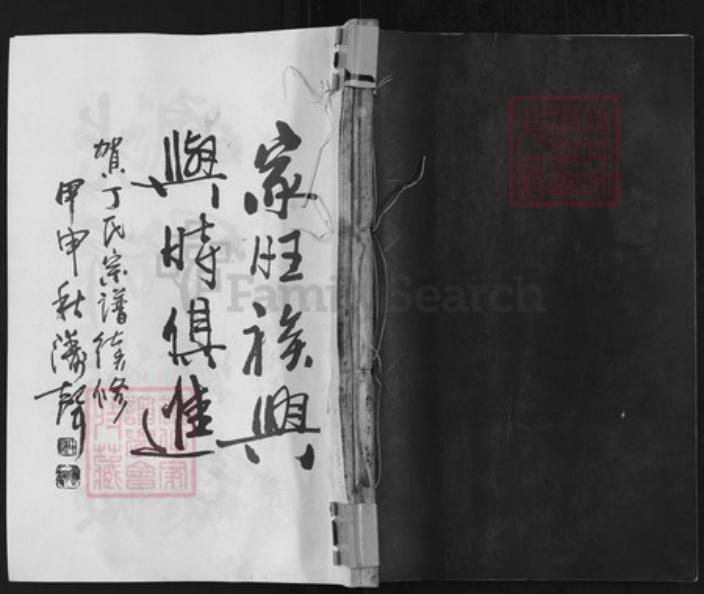 家旺族興
與時俱進
賀丁氏宗譜續修
甲申秋漢聲
FamilySearch